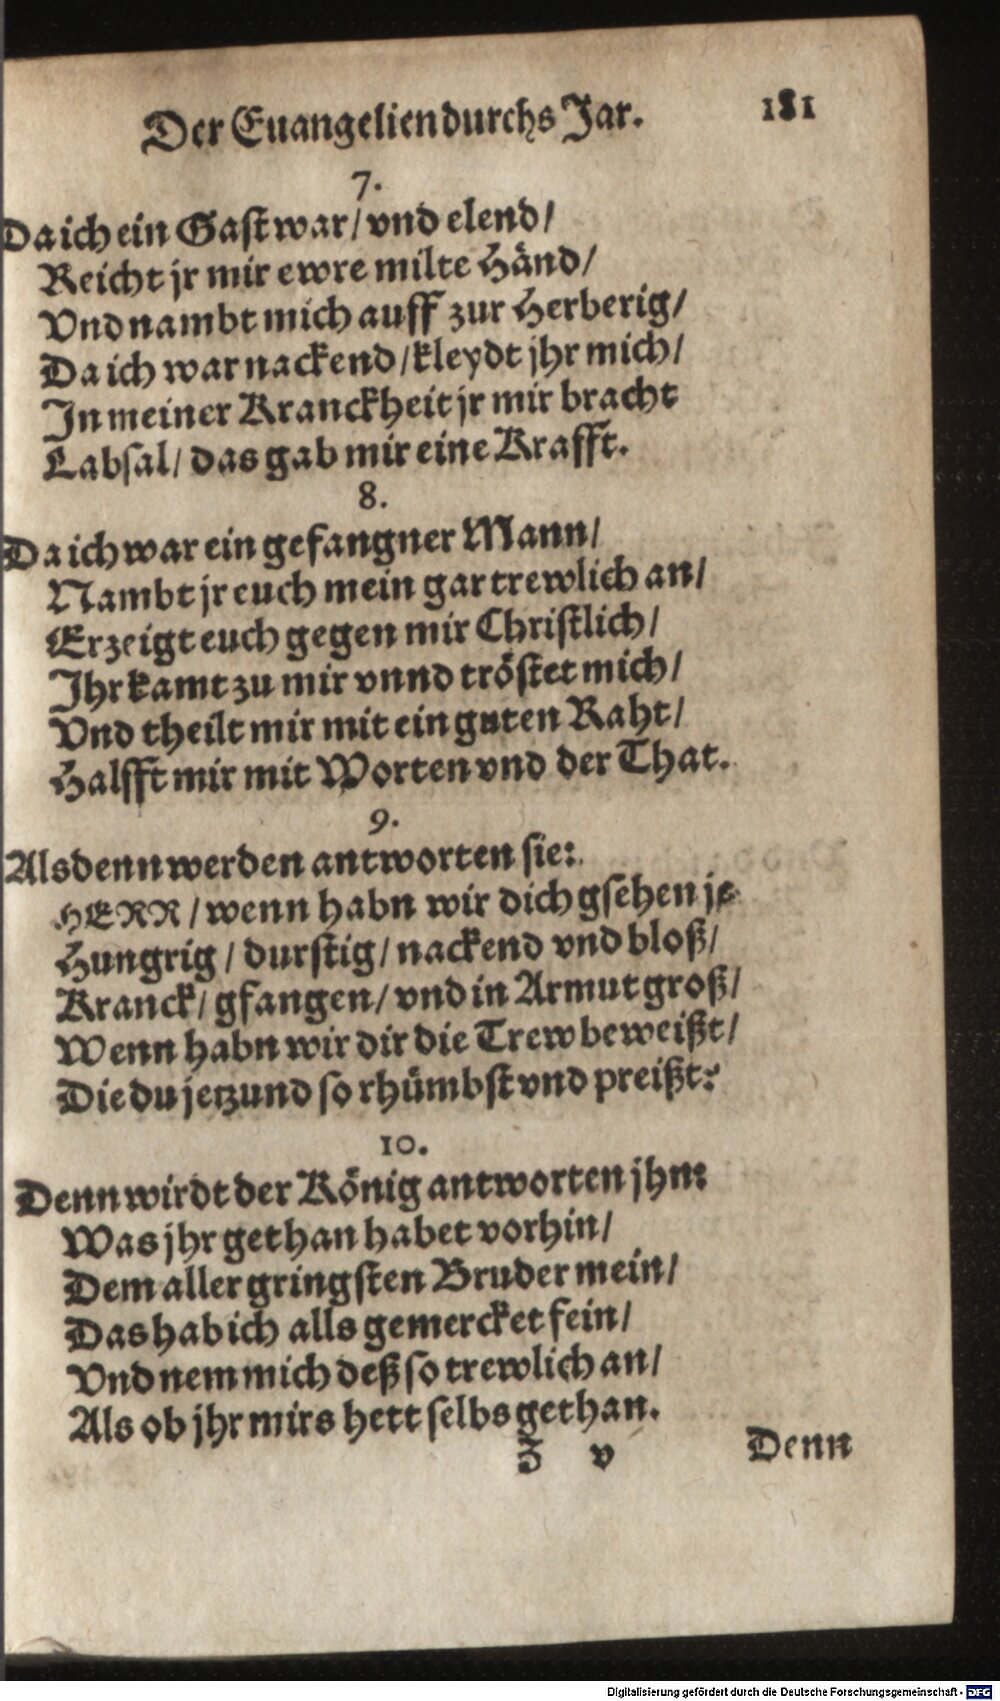 Der Euangelien durchs Jar. 181
7.
Da ich ein Gast war/ vnd elend/
Reicht jr mir ewre milte Händ/
Vnd nambt mich auff zur Herberig/
Da ich war nackend/ kleydt jhr mich/
In meiner Kranckheit jr mir bracht
Labsal/ das gab mir eine Krafft.
8.
Da ich war ein gefangner Mann/
Nambt jr euch mein gar trewlich an/
Erzeigt euch gegen mir Christlich/
Ihr kamt zu mir vnnd tröstet mich/
Vnd theilt mir mit ein guten Raht/
Halfft mir mit Worten vnd der That.
9.
Alsdenn werden antworten sie:
HERR/ wenn habn wir dich gsehen je
Hungrig/ durstig/ nackend vnd bloß/
Kranck/ gfangen/ vnd in Armut groß/
Wenn habn wir dir die Trew beweißt/
Die du jetzund so rhümbst vnd preißt?
10.
Denn wirdt der König antworten jhn:
Was jhr gethan habet vorhin/
Dem aller gringsten Bruder mein/
Das hab ich alls gemercket fein/
Vnd nem mich deß so trewlich an/
Als ob jhr mirs hett selbs gethan.
Z v Denn
Digitalisierung gefördert durch die Deutsche Forschungsgemeinschaft - DFG